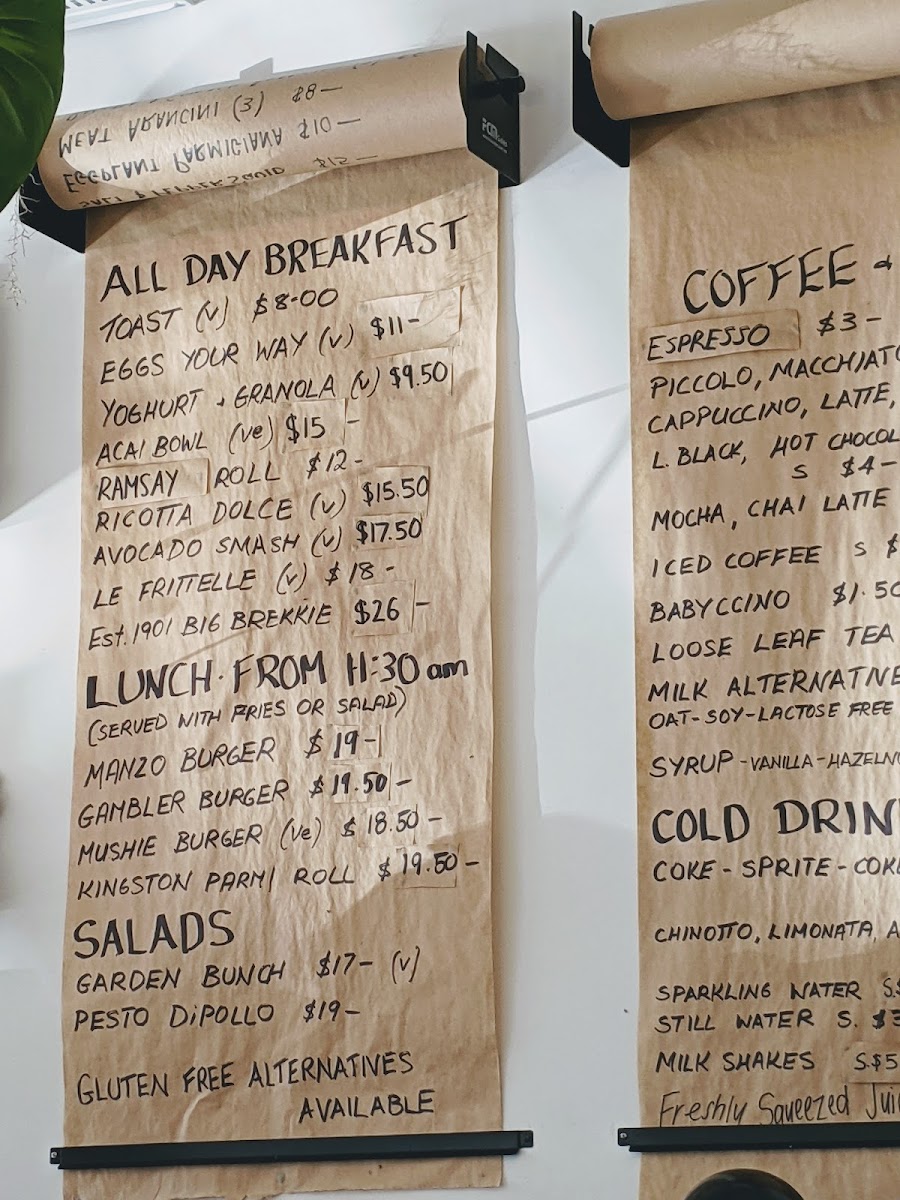 MEAT ARANCINI (3) $8-
EGGPLANT PARMIGIANA $10-
SALT & PEPPER SQUID $12-
ALL DAY BREAKFAST
TOAST (v) $8-00
EGGS YOUR WAY (v) $11-
YOGHURT + GRANOLA (v) $9.50
ACAI BOWL (ve) $15-
RAMSAY ROLL $12-
RICOTTA DOLCE (v) $15.50
AVOCADO SMASH (v) $17.50
LE FRITTELLE (v) $18-
Est.1901 BIG BREKKIE $26-
LUNCH. FROM 11:30 am
(SERVED WITH FRIES OR SALAD)
MANZO BURGER $19-
GAMBLER BURGER $19.50-
MUSHIE BURGER (ve) $18.50-
KINGSTON PARMI ROLL $19.50-
SALADS
GARDEN BUNCH $17- (v)
PESTO DiPOLLO $19-
GLUTEN FREE ALTERNATIVES
AVAILABLE
COFFEE +
ESPRESSO $3-
PICCOLO, MACCHIATO
CAPPUCCINO, LATTE,
L. BLACK, HOT CHOCOL
S $4-
MOCHA, CHAI LATTE
ICED COFFEE S $
BABYCCINO $1.50
LOOSE LEAF TEA
MILK ALTERNATIVE
OAT-SOY-LACTOSE FREE
SYRUP-VANILLA-HAZELN
COLD DRIN
COKE - SPRITE - COKE
CHINOTTO, LIMONATA, A
SPARKLING WATER S.$
STILL WATER S. $3
MILK SHAKES S.$5
Freshly Squeezed Jui